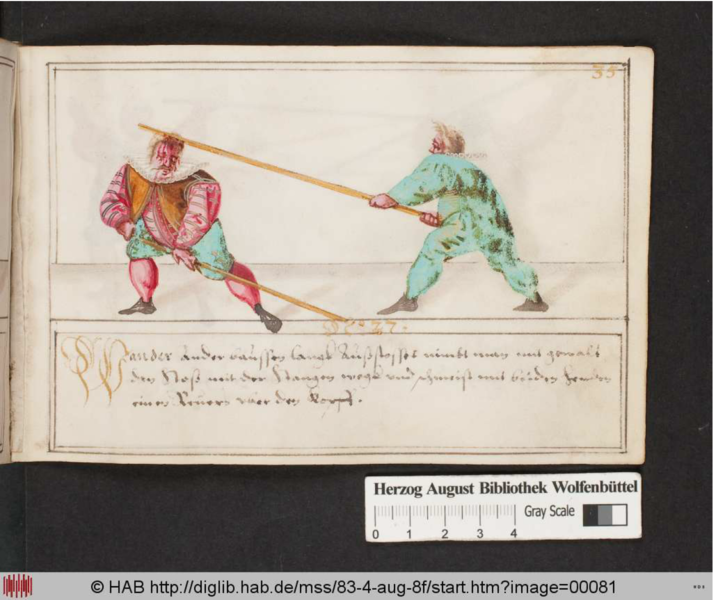 35
No: 27.
Wan der Ander daussen lang Außstosset nimbt man mit gewalt
den Stoß mit der Stangen wegk und schmeist mit beiden henden
einen Reuern uber den Kopf.
Herzog August Bibliothek Wolfenbüttel
0 1 2 3 4 Gray Scale
© HAB http://diglib.hab.de/mss/83-4-aug-8f/start.htm?image=00081